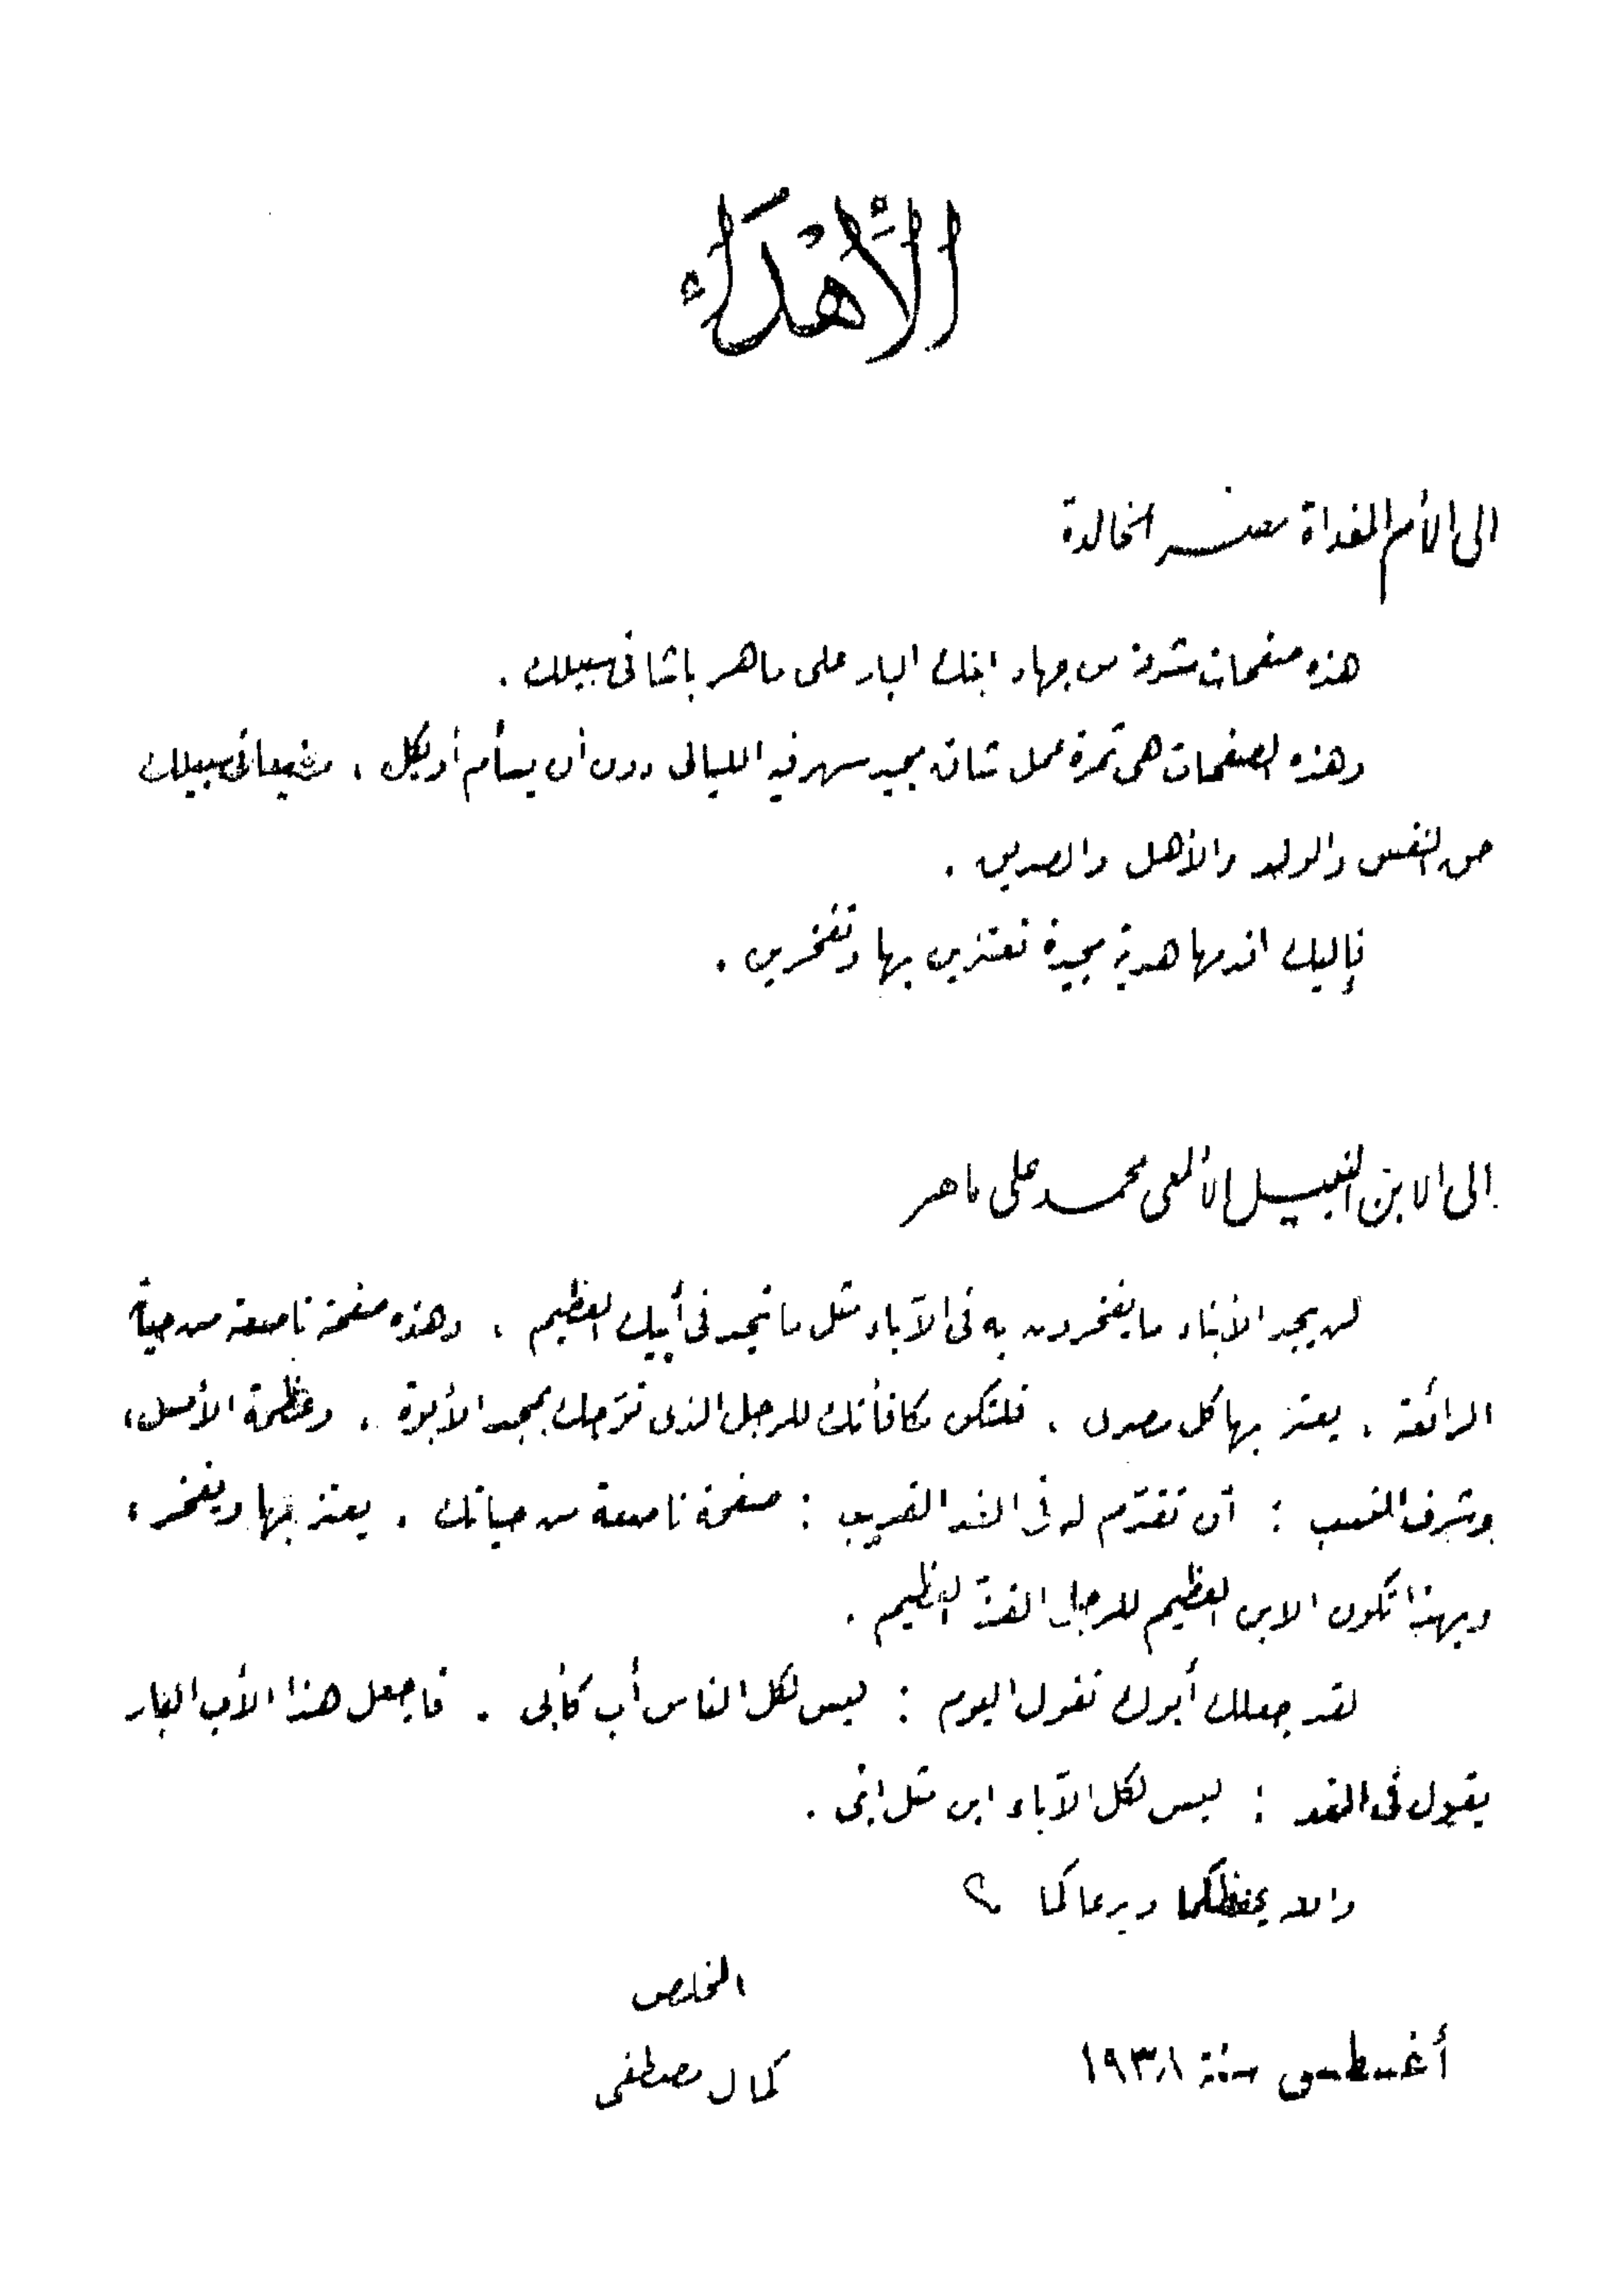 الأهداء
الى الأم المفداة مصر الخالدة
هذه صفحات مشرفة من جهاد ابنك البار على ماهر باشا فى سبيلك .
وهذه الصفحات هى ثمرة عمل شاق مجيد سهر فيه الليالى دون أن يسأم أو يكل ، مضيعا فى سبيلك
حق النفس والولد والأهل والصديق .
فإليك اقدمها هدية مجيدة تعتزين بها وتفخرين .
الى الابن النبيل الألمعى محمد على ماهر
لن يجد الأبناء ما يفخرون به فى الآباء مثل ما تجد فى أبيك العظيم ، وهذه صفحة ناصعة من حياته
الرائعة ، يعتز بها كل مصرى ، فلتكن مكافأتك للرجل الذى توّجك بمجد الأبوة ، وعظمة الأصل ،
وشرف النسب : أن تقدّم له فى الغد القريب : صفحة ناصعة من حياتك ، يعتز بها ويفخر ،
وبهذا تكون الابن العظيم للرجل الفذّ العظيم .
لقد جعلك أبوك تقول اليوم : ليس لكل الناس أب كأبى . فاجعل هذا الأب البار
يقول فى الغد : ليس لكل الآباء ابن مثل ابنى .
والله يحفظكما ويرعاكما
المخلص
أغسطس سنة ١٩٣٨ كمال مصطفى